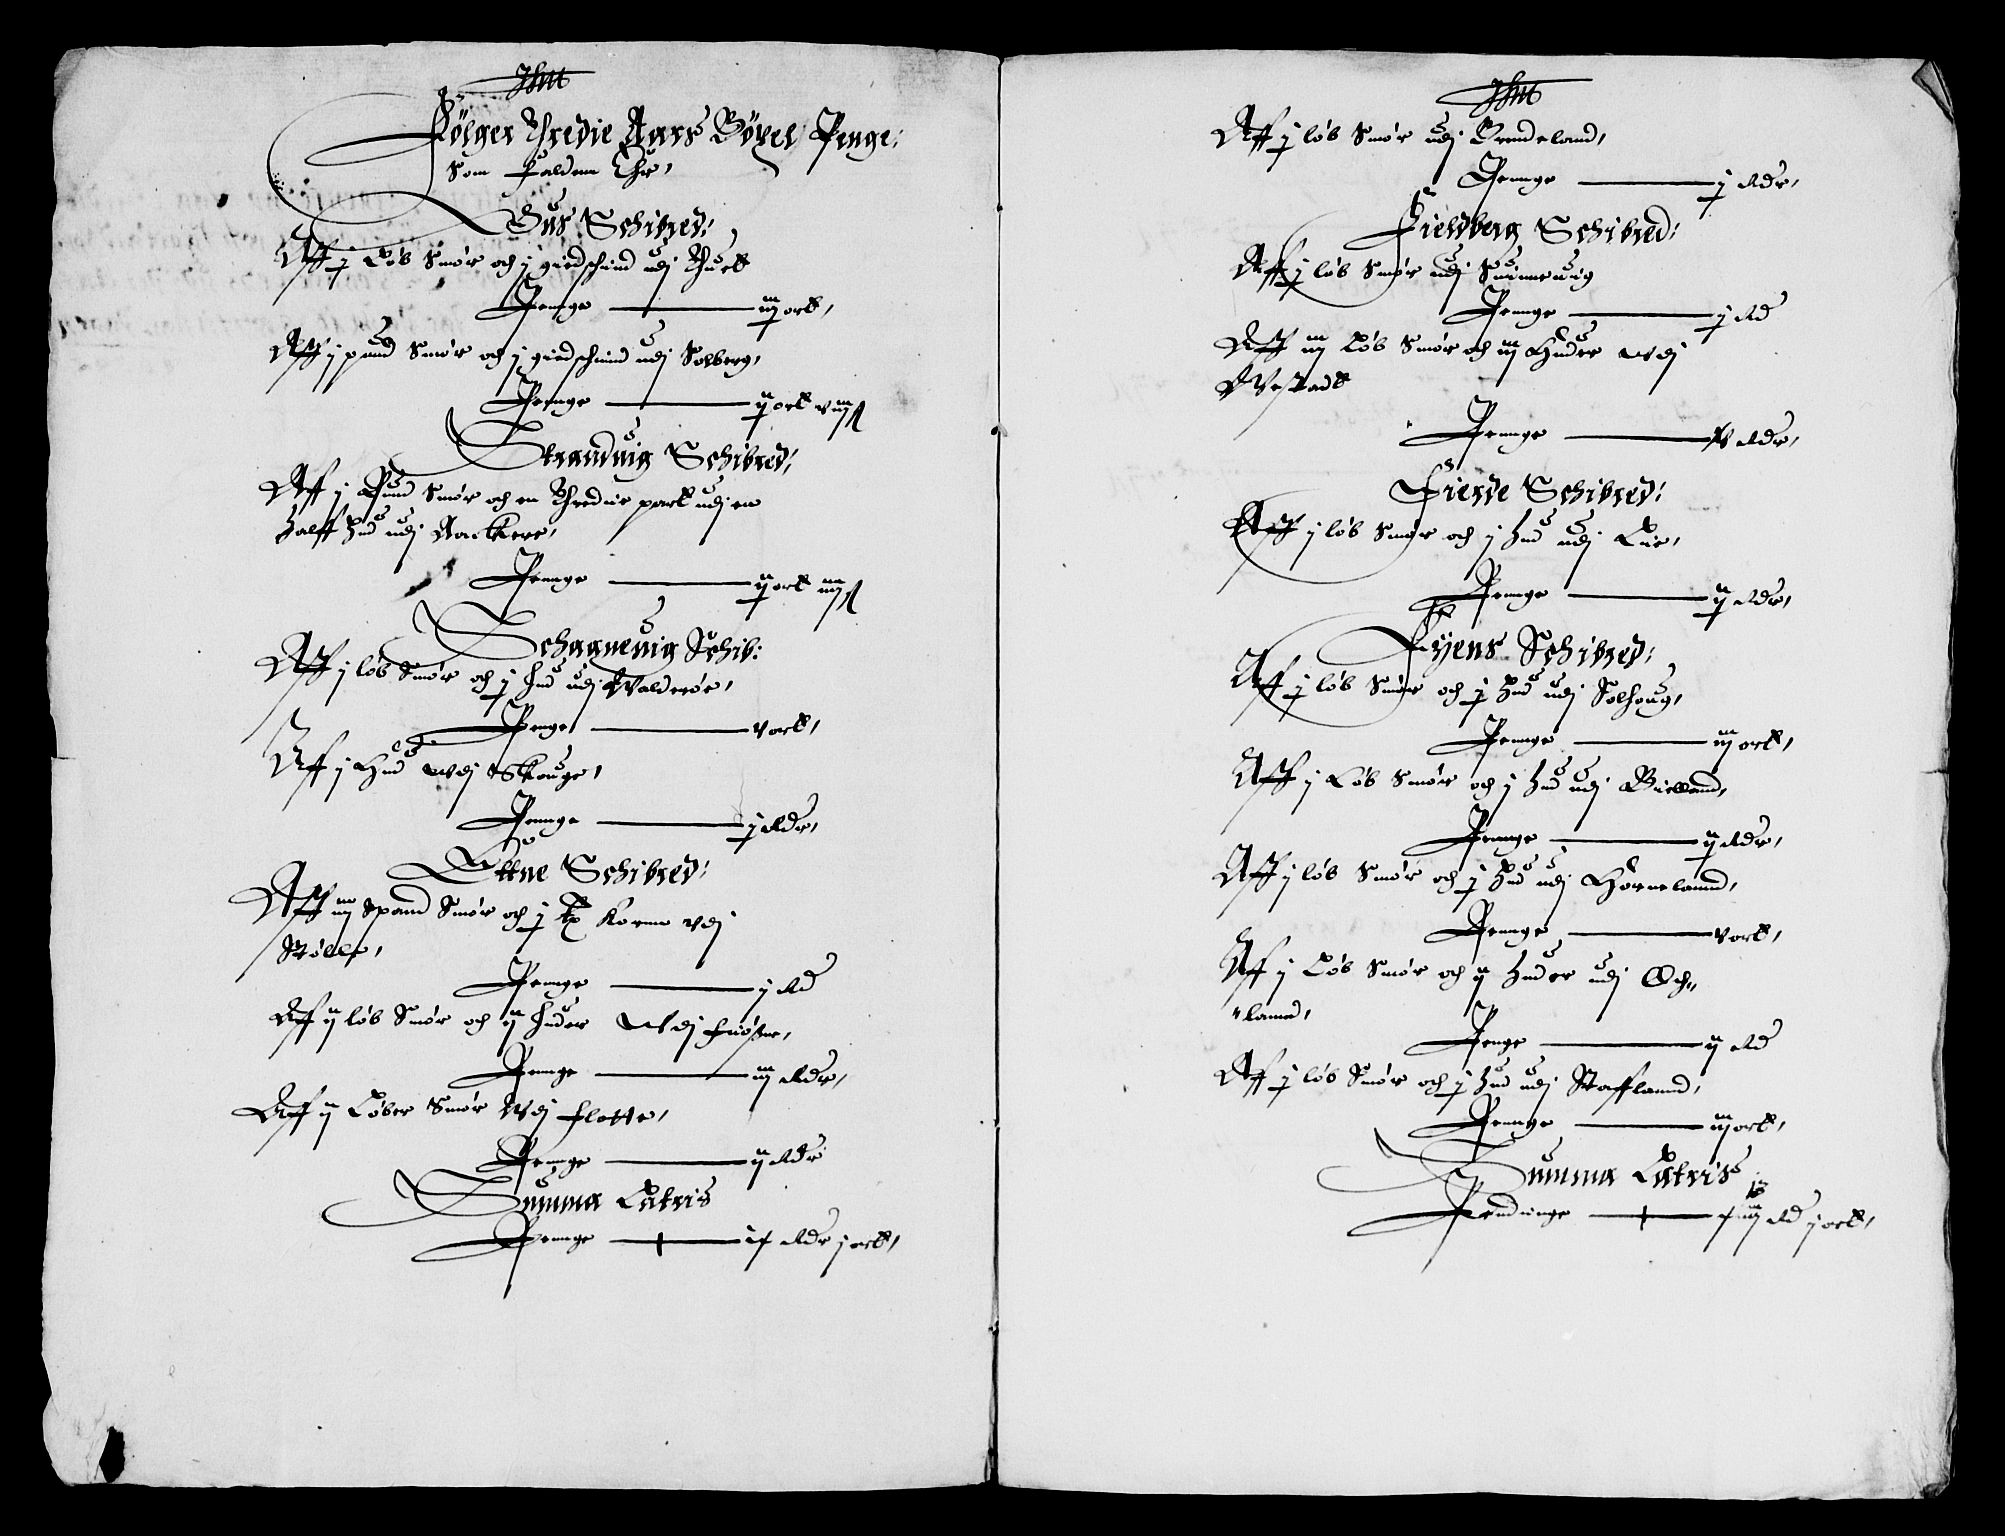 Jhm
Følger Thredie Aars Böxel Penge:
som faldenn Ehr,
Ous Schibred:
Aff j Løb Smør och j giedschind udj Thuett
Pennge iij ort,
Aff j pund Smør och j giedschind udj Solberg,
Pennge ij ort viij ß
Strandvig Schibred:
Aff j Pund Smør och en Thredie part udj en
halff hud udj Aackere,
Pennge ij ort iiij ß
Schagnevig Schib:
Aff j løb Smør och j hud udj Walderøe,
Penge v ort,
Aff j Hud wdj Skouge,
Pennge j Rdr,
Ettne Schibred:
Aff iij Spand Smør och j tp Kornn wdj
Støele,
Pennge j Rd
Aff ij løb Smør och ij huder wdj friøsne,
Pennge iij Rdr,
Aff ij Løber Smør wdj flotte,
Pennge ij Rdr
Summa Latris
Pennge ix Rdr j ort,
Jhm
Aff j løb Smør udj Grindeland,
Pennge j Rdr,
Fieldberg Schibred:
Aff j løb Smør udj Svinnevig
Pennge j Rd
Aff iij Løb Smør och iij Huder wdj
Ovestadt
Pennge Rdr,
Fierde Schibred:
Aff j løb Smør och j hud udj Lie,
Pennge ij Rdr,
Føyens Schibred:
Aff j løb Smør och j hud udj Solhoug,
Pennge iij ort,
Aff j Løb Smør och j hud udj Bielland,
Pennge ij Rdr,
Aff j løb Smør och j hud udj Hørnelannd,
Pennge v ort,
Aff j Løb Smør och ij huder udj Och"
"lannd,
Penge ij Rd
Aff j løb Smør och j hud udj Stafflannd,
Pennge iij ort,
Summa Latris
Pendinge Rd j ort,